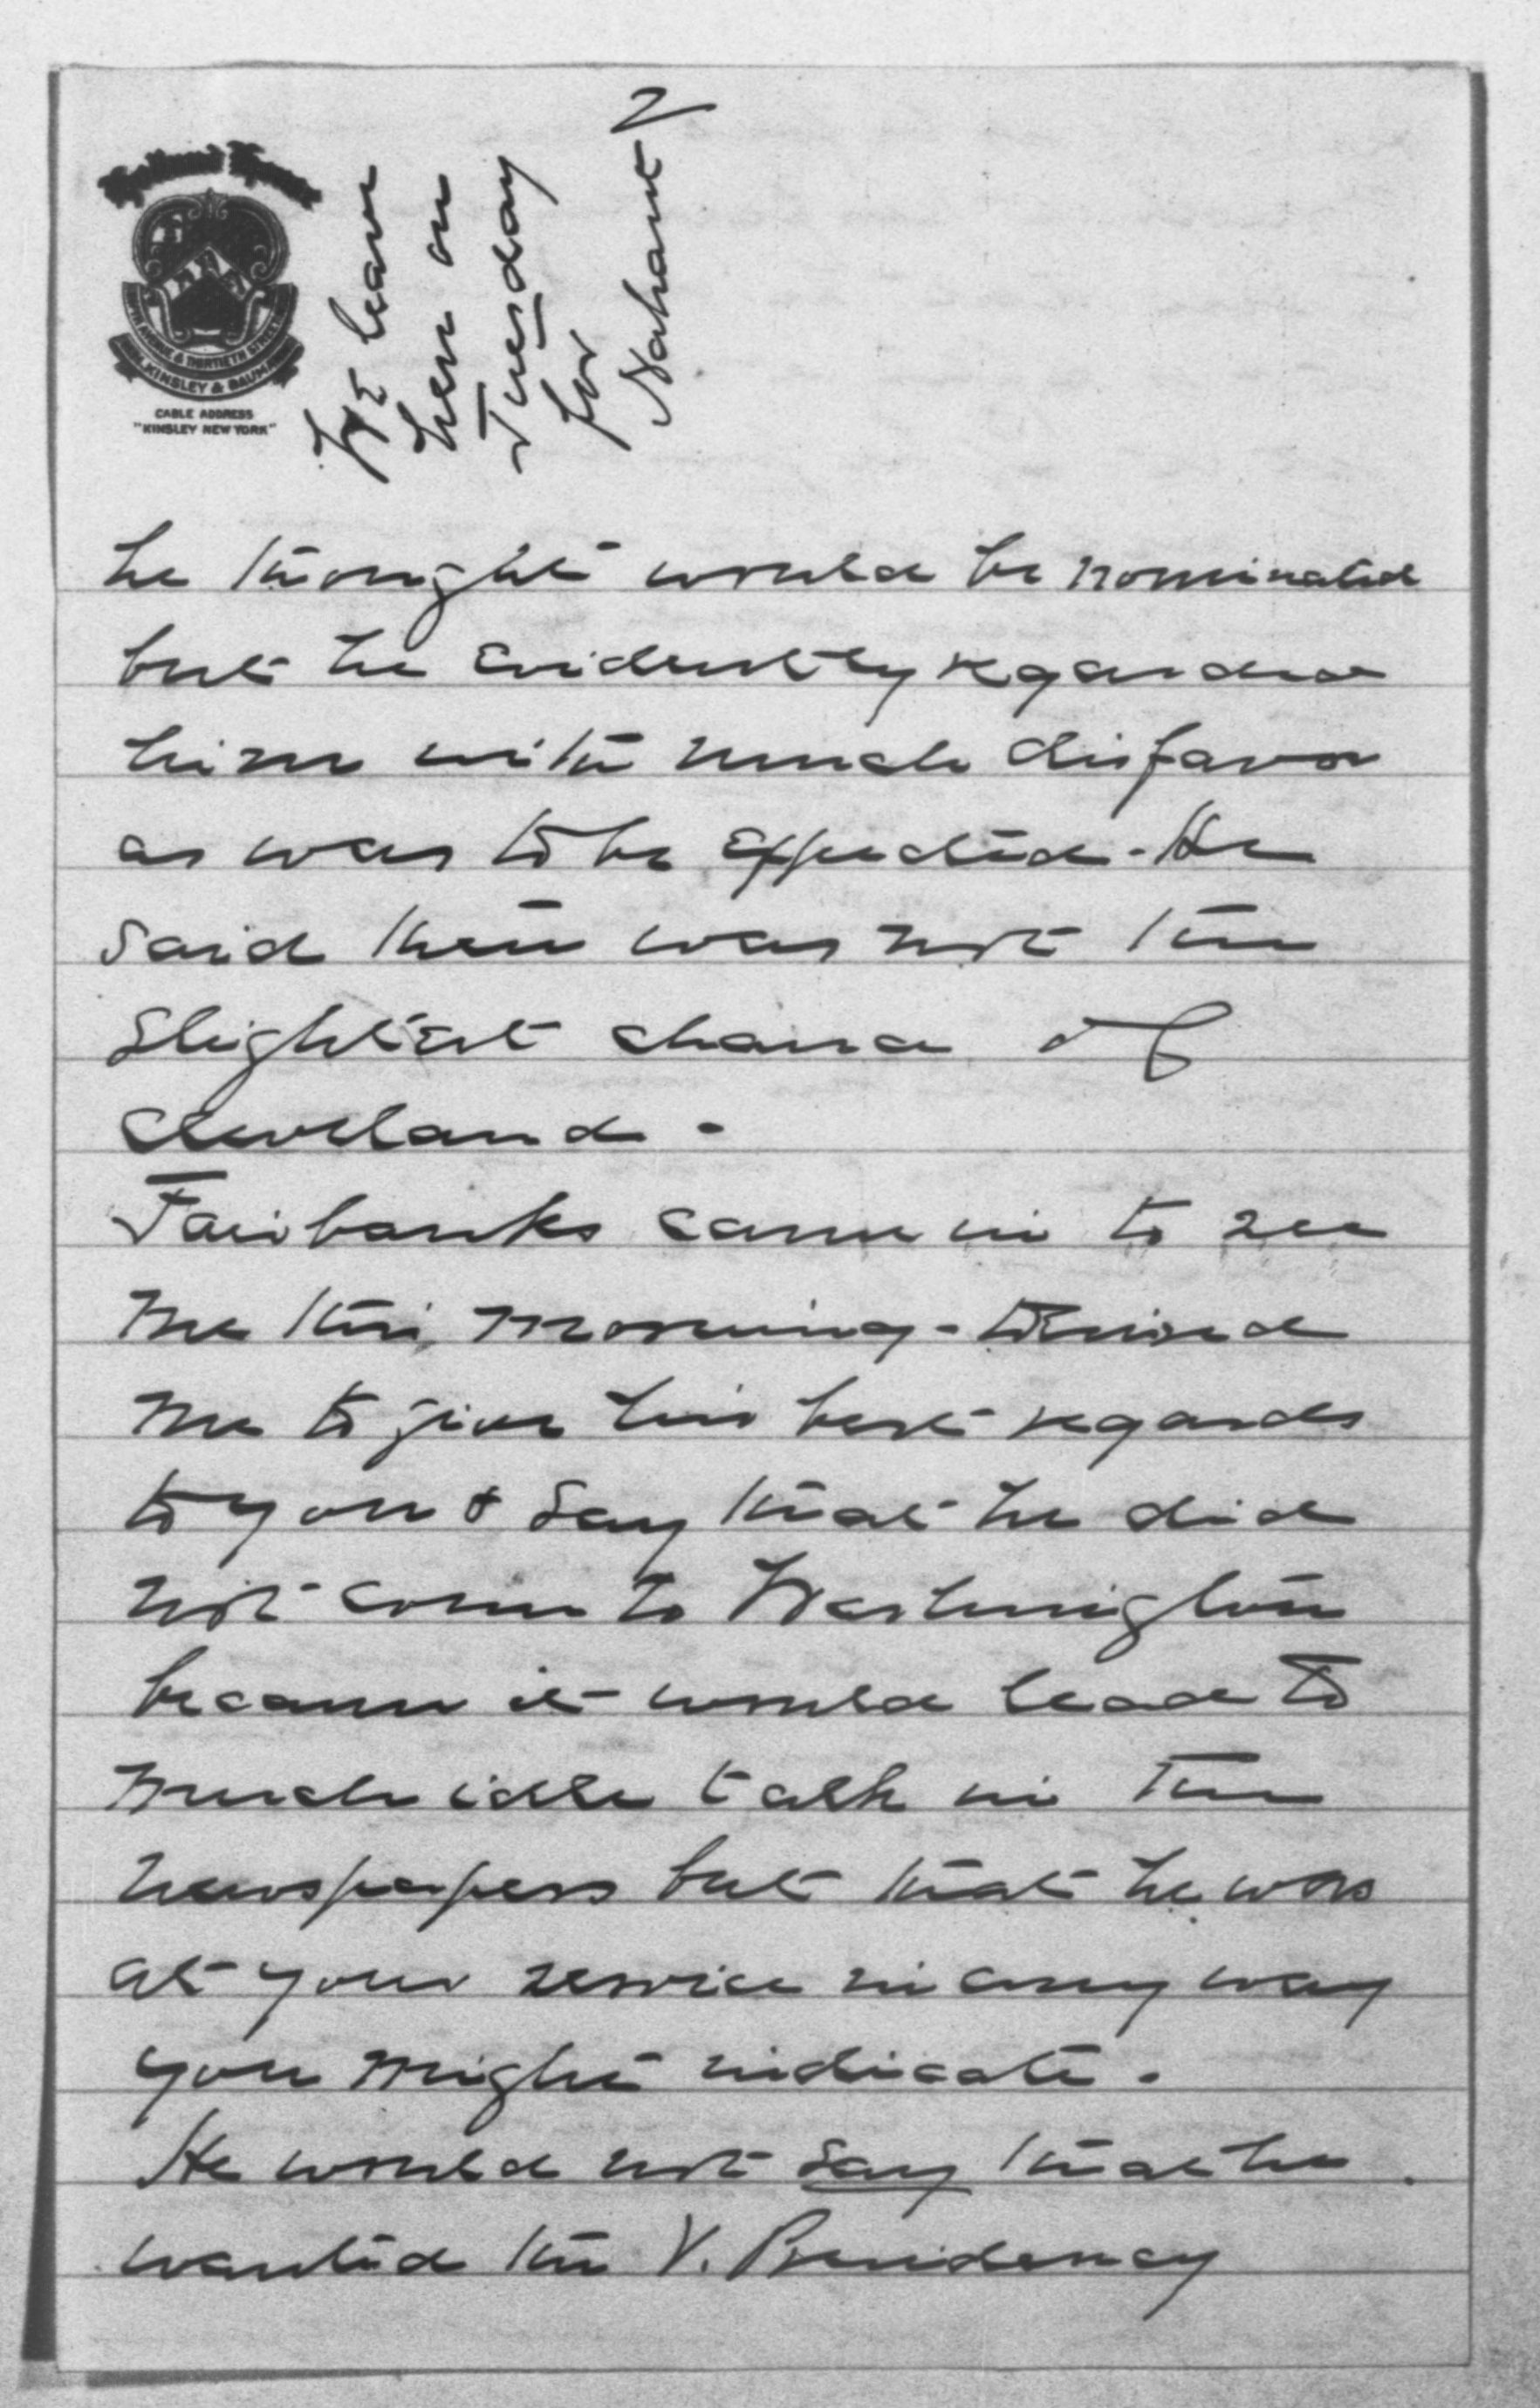 Holland House
FIFTH AVENUE & THIRTIETH STREET
KINSLEY & BAUMANN
CABLE ADDRESS
"KINSLEY NEW YORK"
We leave
here on
Tuesday
for
Nahant
he thought would be nominated
but he evidently regarded
him with much disfavor
as was to be expected. He
said there was not the
slightest chance of
Cleveland.
Fairbanks came in to see
me this morning - desired
me to give his best regards
to you & say that he did
not come to Washington
because it would lead to
much idle talk in the
newspapers but that he was
at your service in any way
you might indicate.
He would not say that he
wanted the V. Presidency